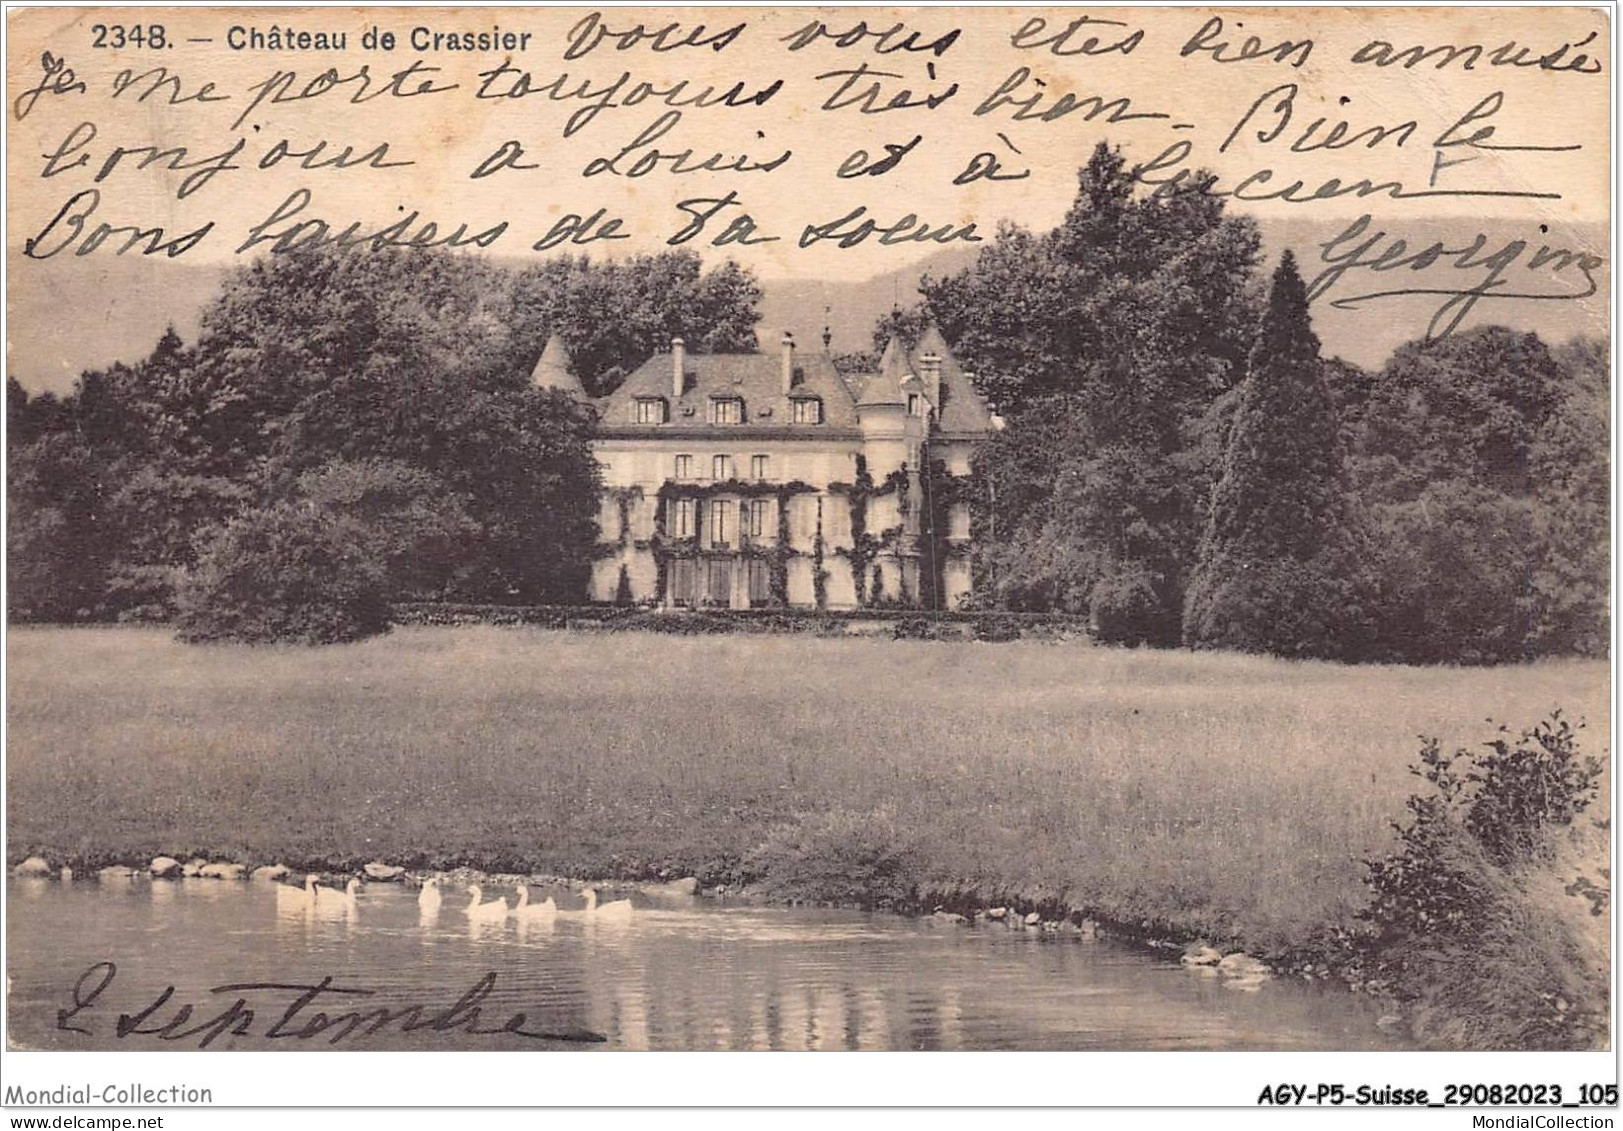 2348. — Château de Crassier vous vous etes bien amusé
Je me porte toujours très bien - Bien le
bonjour a Louis et à Lucien
Bons baisers de ta soeur Georgine
2 septembre
Mondial-Collection
AGY-P5-Suisse_29082023_105
www.delcampe.net
MondialCollection